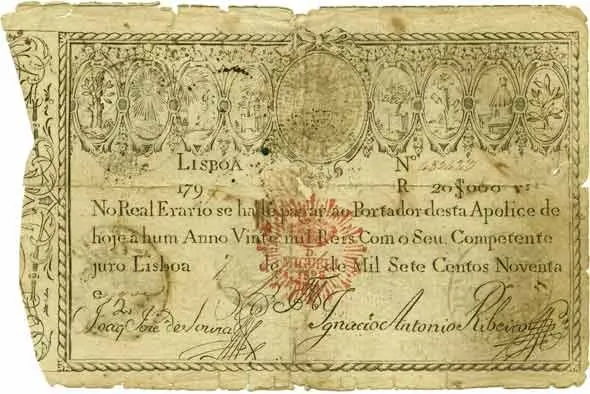 LISBOA Nº
179 R 20$000 rs
No Real Erario se ha de pagar ao Portador desta Apolice de
hoje a hum Anno Vinte mil Reis Com o Seu Competente
juro Lisboa de de Mil Sete Centos Noventa
e
D. MIGUEL I
Joaq Joze de Souza Ignacio Antonio Ribeiro